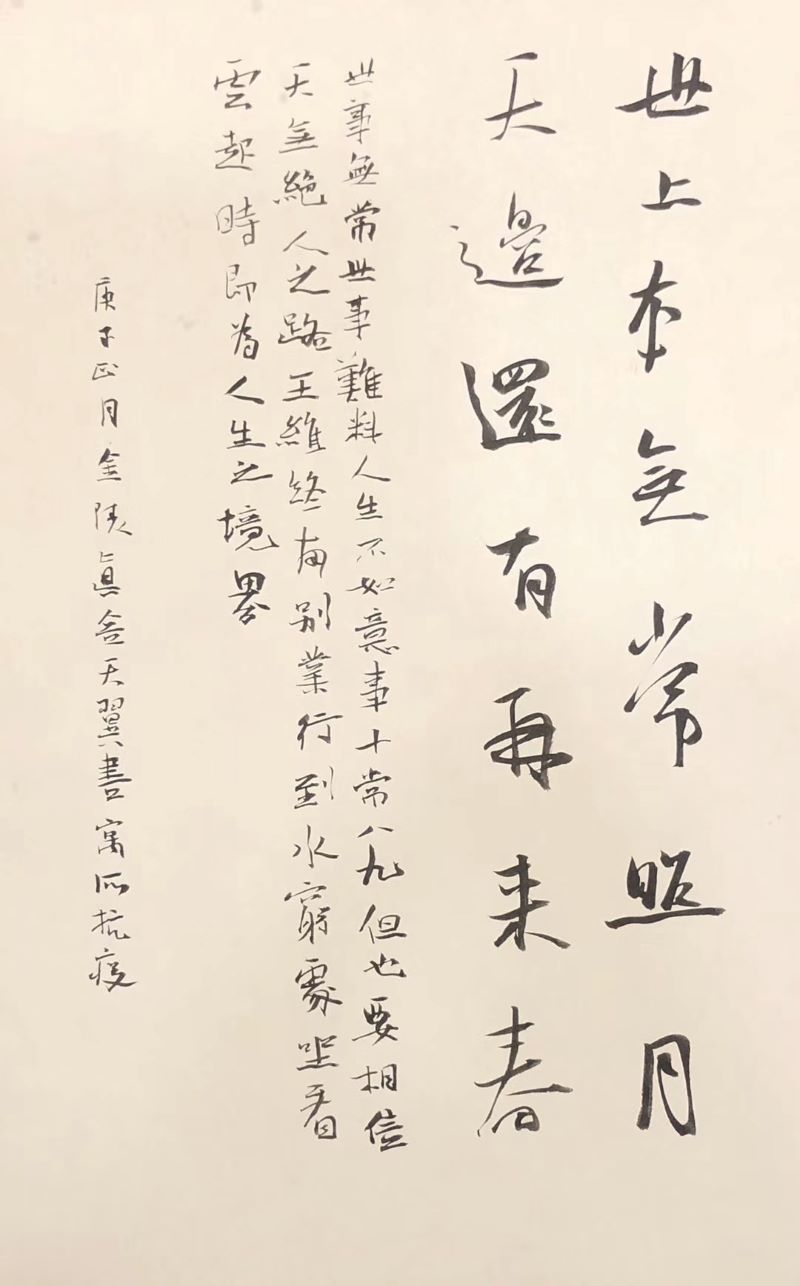 世上本无常照月
天邊還有再来春
世事無常世事難料人生不如意事十常八九但也要相信
天无絕人之路王維終南别業行到水窮處坐看
雲起時即為人生之境界
庚子正月金陵真念天翼書寓所抗疫